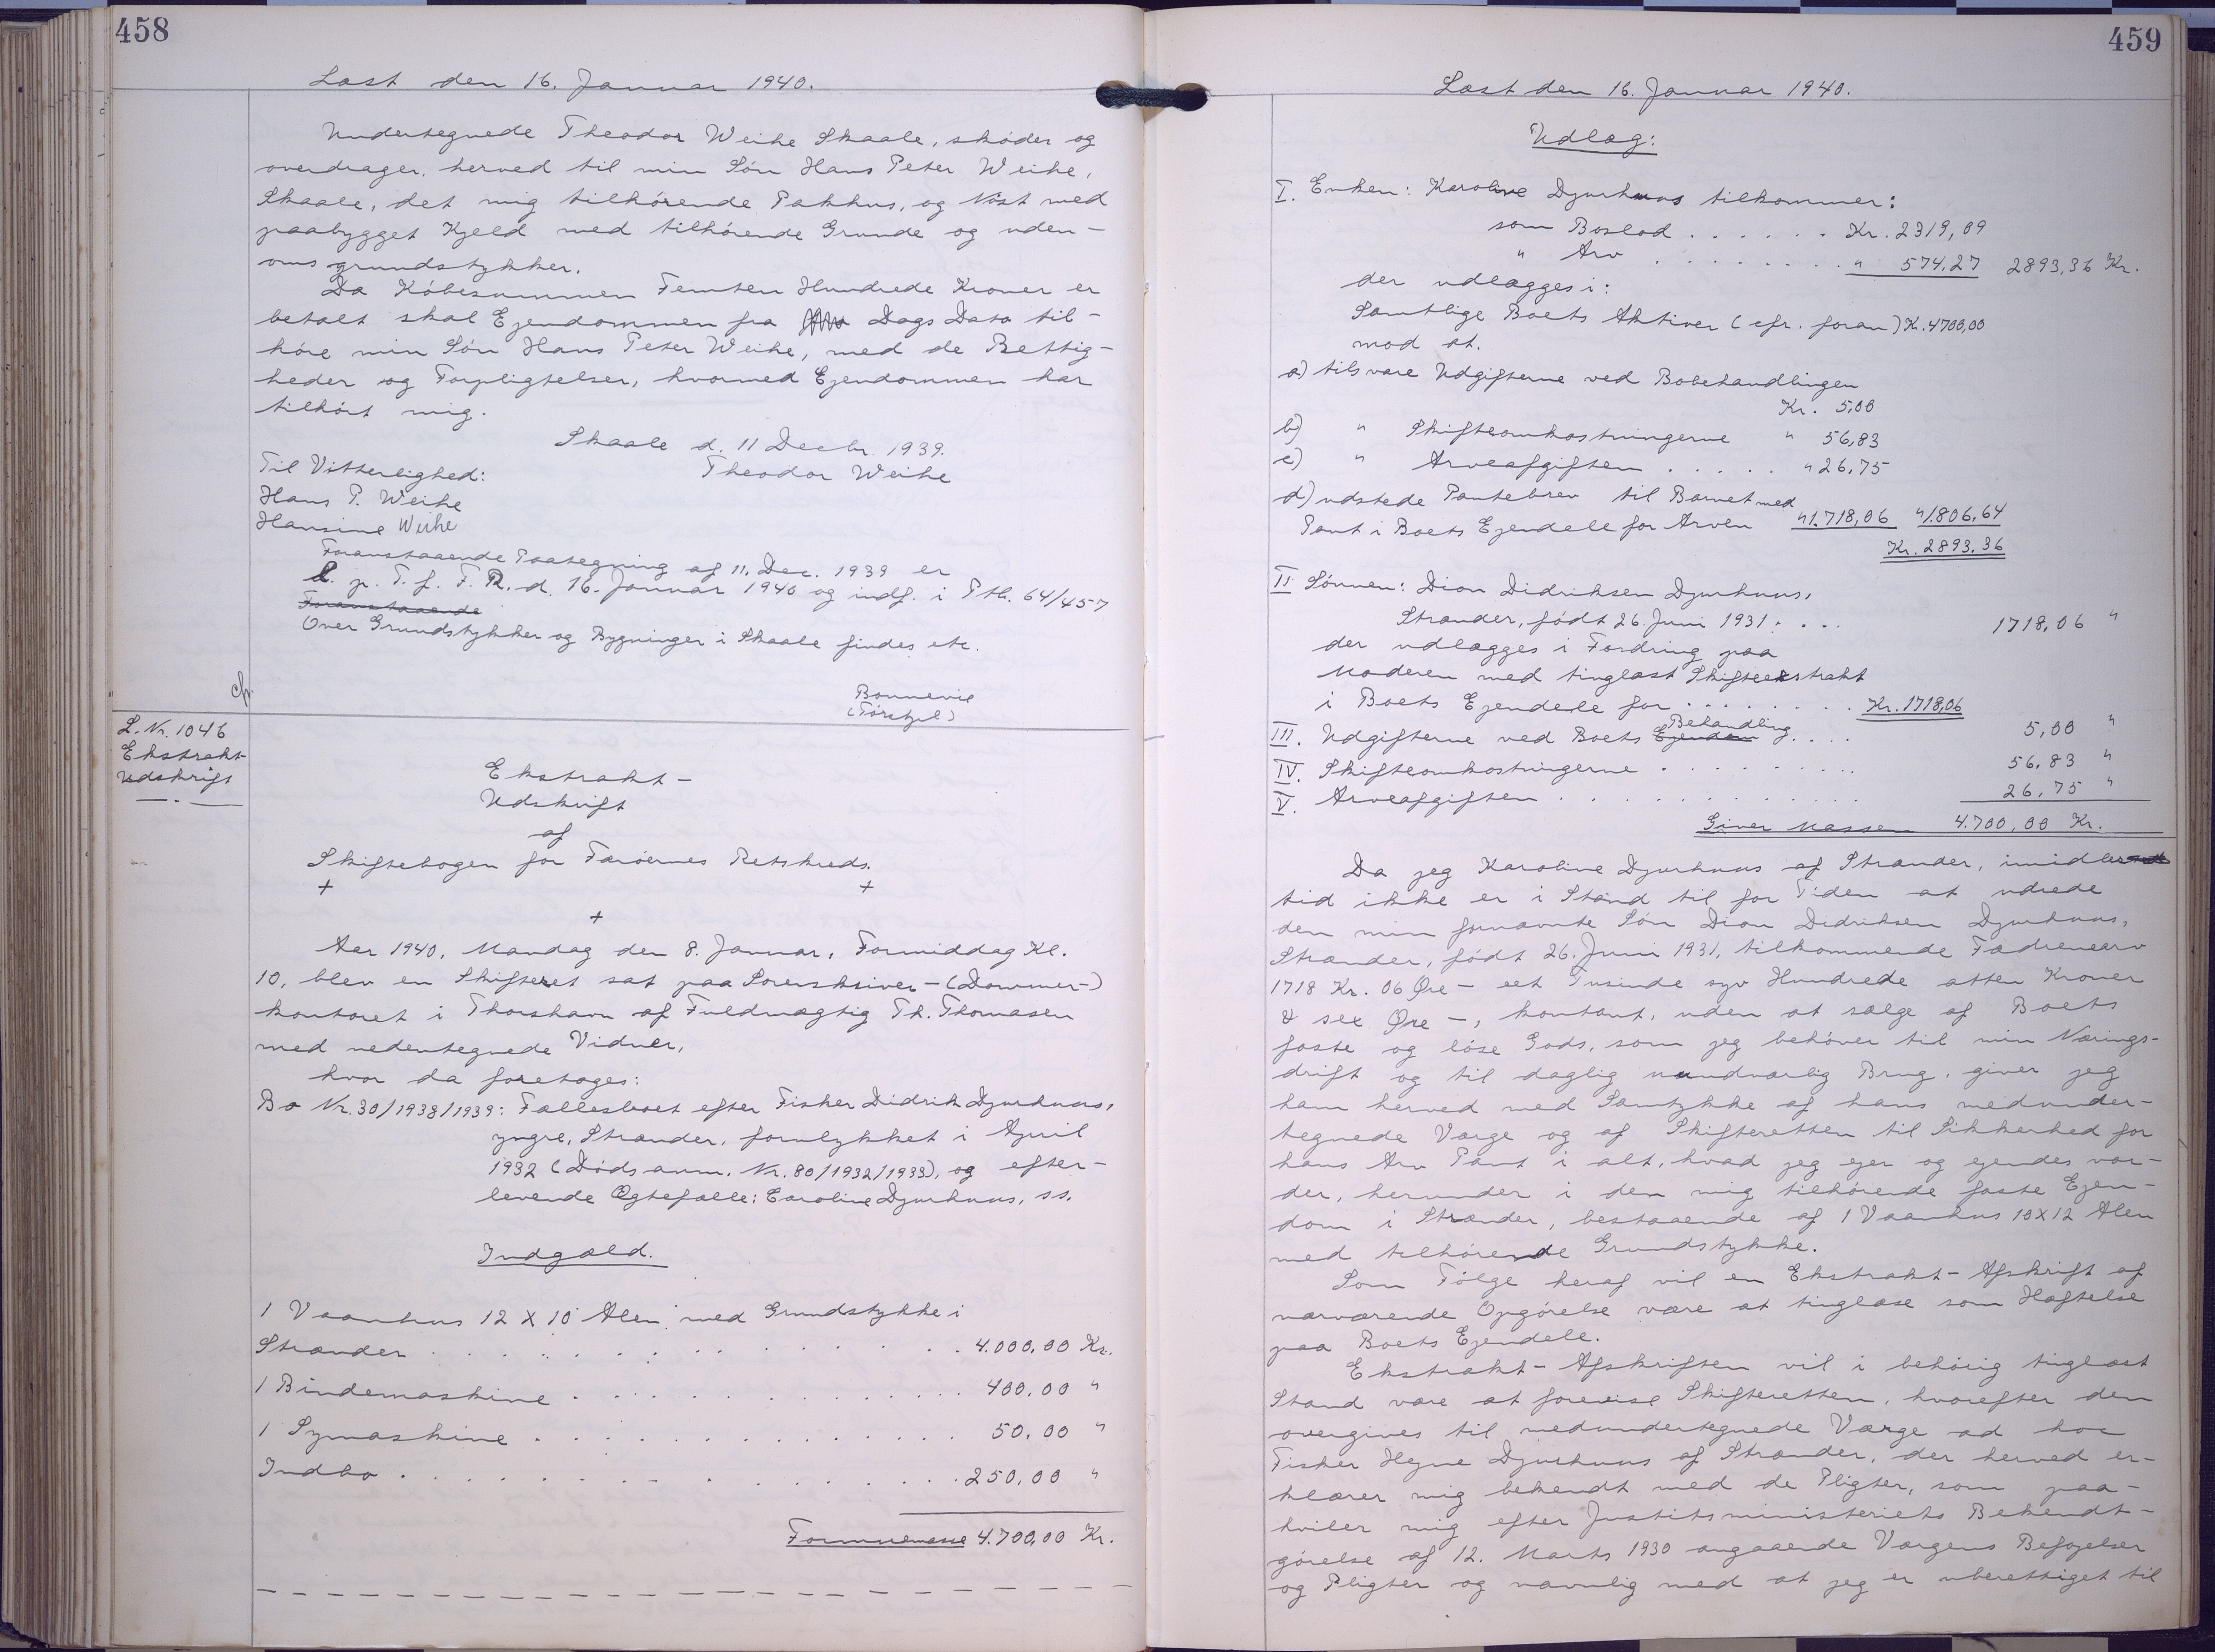 458
Læst den 16. Januar 1940.
Undertegnede Theodor Weihe Skaale, skøder og
overdrager, herved til min Søn Hans Peter Weihe,
Skaale, det mig tilhørende Pakhus, og Nöst med
paabygget Kjeld med tilhørende Grunde og uden-
oms grundstykker.
Da Købesummen Femten Hundrede Kroner er
betalt skal Ejendommen fra Dags Dato til-
høre min Søn Hans Peter Weihe, med de Rettig-
heder og Forpligtelser, hvormed Ejendommen har
tilhørt mig.
Skaale d. 11 Decbr. 1939.
Til Vitterlighed: Theodor Weihe
Hans P. Weihe
Hansine Weihe
Foranstaaende Paategning af 11. Dec. 1939 er
l. p. T. f. F. R. d. 16. Januar 1940 og indf. i Ptb. 64/457
Foranstaaende
Over Grundstykker og Bygninger i Skaale findes etc.
cfr.
Bonnevie
(Törstjel)
L. Nr. 1046
Ekstrakt-
Udskrift
Ekstrakt-
Udskrift
af
Skiftebogen for Færøernes Retskreds.
+ +
+
Aar 1940, Mandag den 8. Januar, Formiddag Kl.
10, blev en Skifteret sat paa Sorenskriver-(Dommer-)
kontoret i Thorshavn af Fuldmægtig Th. Thomasen
med nedentegnede Vidner,
hvor da foretoges:
Bo Nr. 30/1938/1939: Fællesboet efter Fisker Didrik Djurhuus,
yngre, Strænder, forulykket i April
1932 (Dødsanm. Nr. 80/1932/1933), og efter-
levende Ægtefælle: Caroline Djurhuus, ss.
Indgæld.
1 Vaanhus 12 X 10 Alen med Grundstykke i
Strænder . . . . . . . . . . . . . 4.000,00 Kr.
1 Bindemaskine . . . . . . . . . . . . 400,00 "
1 Symaskine . . . . . . . . . . . . . 50,00 "
Indbo . . . . . . . . . . . . . . 250,00 "
Formuemasse 4.700,00 Kr.
459
Læst den 16. Januar 1940.
Udlæg:
I. Enken: Karoline Djurhuus tilkommer:
som Boslod . . . . . . Kr. 2319,09
" Arv . . . . . . . . " 574,27 2893,36 Kr.
der udlægges i:
Samtlige Boets Aktiver (cfr. foran) K. 4700,00
mod at.
a) tilsvare Udgifterne ved Bobehandlingen
Kr. 5,00
b) " Skifteomkostningerne " 56,83
c) " Arveafgiften . . . . . " 26,75
d) udstede Pantebrev til Barnet med
Pant i Boets Ejendele for Arven " 1.718,06 " 1.806,64
Kr. 2893,36
II Sønnen: Dion Didriksen Djurhuus,
Strænder, født 26. Juni 1931. . . . 1718,06 "
der udlægges i Fordring paa
Moderen med tinglæst Skifteekstrakt
i Boets Ejendele for . . . . . . . . Kr. 1718,06
III. Udgifterne ved Boets Ejendom Behandling . . . . 5,00 "
IV. Skifteomkostningerne . . . . . . . . . . 56,83 "
V. Arveafgiften . . . . . . . . . . . . . 26,75 "
Giver Massen 4.700,00 Kr.
Da jeg Karoline Djurhuus af Strænder, imidler
tid ikke er i Stand til for Tiden at udrede
den min fornævnte Søn Dion Didriksen Djurhuus,
Strænder, født 26. Juni 1931, tilkommende Fædrenearv
1718 Kr. 06 Øre - eet Tusinde syv Hundrede atten Kroner
& sex Øre -, kontant, uden at sælge af Boets
faste og løse Gods, som jeg behøver til min Nærings-
drift og til daglig uundværlig Brug, giver jeg
ham herved med Samtykke af hans medunder-
tegnede Værge og af Skifteretten til Sikkerhed for
hans Arv Pant i alt, hvad jeg ejer og ejendes vor-
der, herunder i den mig tilhørende faste Ejen-
dom i Strænder, bestaaende af 1 Vaanhus 10X12 Alen
med tilhørende Grundstykke.
Som Følge heraf vil en Ekstrakt-Afskrift af
nærværende Opgørelse være at tinglæse som Hæftelse
paa Boets Ejendele.
Ekstrakt-Afskriften vil i behørig tinglæst
Stand være at forevise Skifteretten, hvorefter den
overgives til medundertegnede Værge ad hoc
Fisker Hejne Djurhuus af Strænder, der herved er-
klærer mig bekendt med de Pligter, som paa-
hviler mig efter Justitsministeriets Bekendt-
gørelse af 12. Marts 1930 angaaende Værgens Beføjelser
og Pligter og navnlig med at jeg er uberettiget til